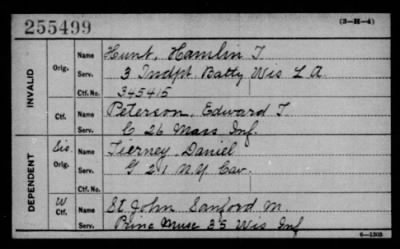 255499
(3-H-4)
INVALID
Orig. Name Hunt, Hamlin T.
Serv. 3 Indpt. Batty Wis L A.
Ctf. No. 345415
Ctf. Name Peterson, Edward T.
Serv. C 26 Mass Inf.
DEPENDENT
Sis. Orig. Name Tierney, Daniel
Serv. G 21 N.Y. Cav.
Ctf. No.
W Ctf. Name St. John Sanford M.
Serv. Prin. Musc 35 Wis Inf
6-1303